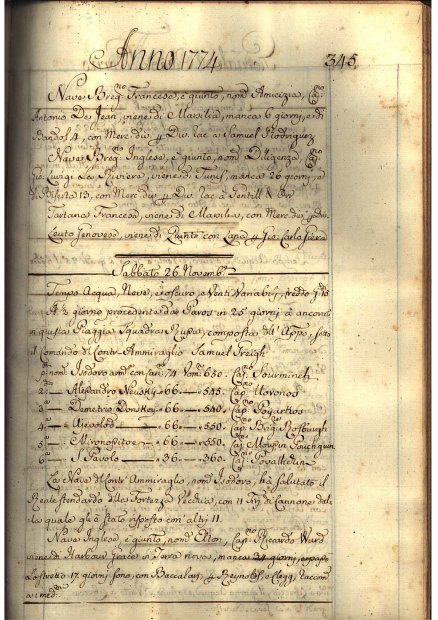 Anno 1774, 345
Nave Breg.no Francese, è giunto, nom.º Amicizia, Cap.no
Antonio De Jean, viene di Marsilia, manca 6 giorni, e di
Bandol 4, con Merc: div: p Div: rac: a Samuel Rodriguez
Nave Breg.no Inglese, è giunto, nom.º Diligenza Cap.no
Luigi La Riviera, viene di Tunis, manca 26 giorni, e
di Biserta 13, con Merc: div: p Div: rac: a Gentill & Orr
Tartana Francesa, viene di Marsilia, con Merc: div: p div:
Leuto Genovese, viene di Quinto con Lana p Carla
Sabbato 26 Novemb.e
Tempo Acqua, Neve, e oscuro, e Venti Variabili, freddo
A 2 giorno procedente da Paros in 25 giorni, è ancorata
in questa Piaggia Squadra Russa, composta dell' Appo, sotto
il Comando di Contr Ammiraglio Samuel Greigh
P.a nom.º Isodoro arm.a con Can: 74 Uom: 650: Cap.no
2.a — Alessandro Neuskij — 66 — 545. Cap.no Voronos
3.a — Demetrio Donskoy — 66 — 540. Cap.no
4.a — — 66 — 550. Cap.no Brig: Roxburgh
5.a — — 66 — 550. Cap.no
6.a — S. Paolo — 36 — 360. Cap.no
La Nave di Contr' Ammiraglio, nom.º Isodoro, hà salutato il
Reale stendardo della Fortezza Vecchia, con 11 Tiri di Cannone dalla
la quale gli è stato risposto con altri 11.
Nave Inglese, è giunto, nom.º Elton, Cap.no Ricardo Ward
viene di Harbour Grace in Terra nova, manca 34 giorni, e passò
Lo stretto 17 giorni sono, con Baccalari, p Reynolds, e Clegg, raccom.
a i med.mi